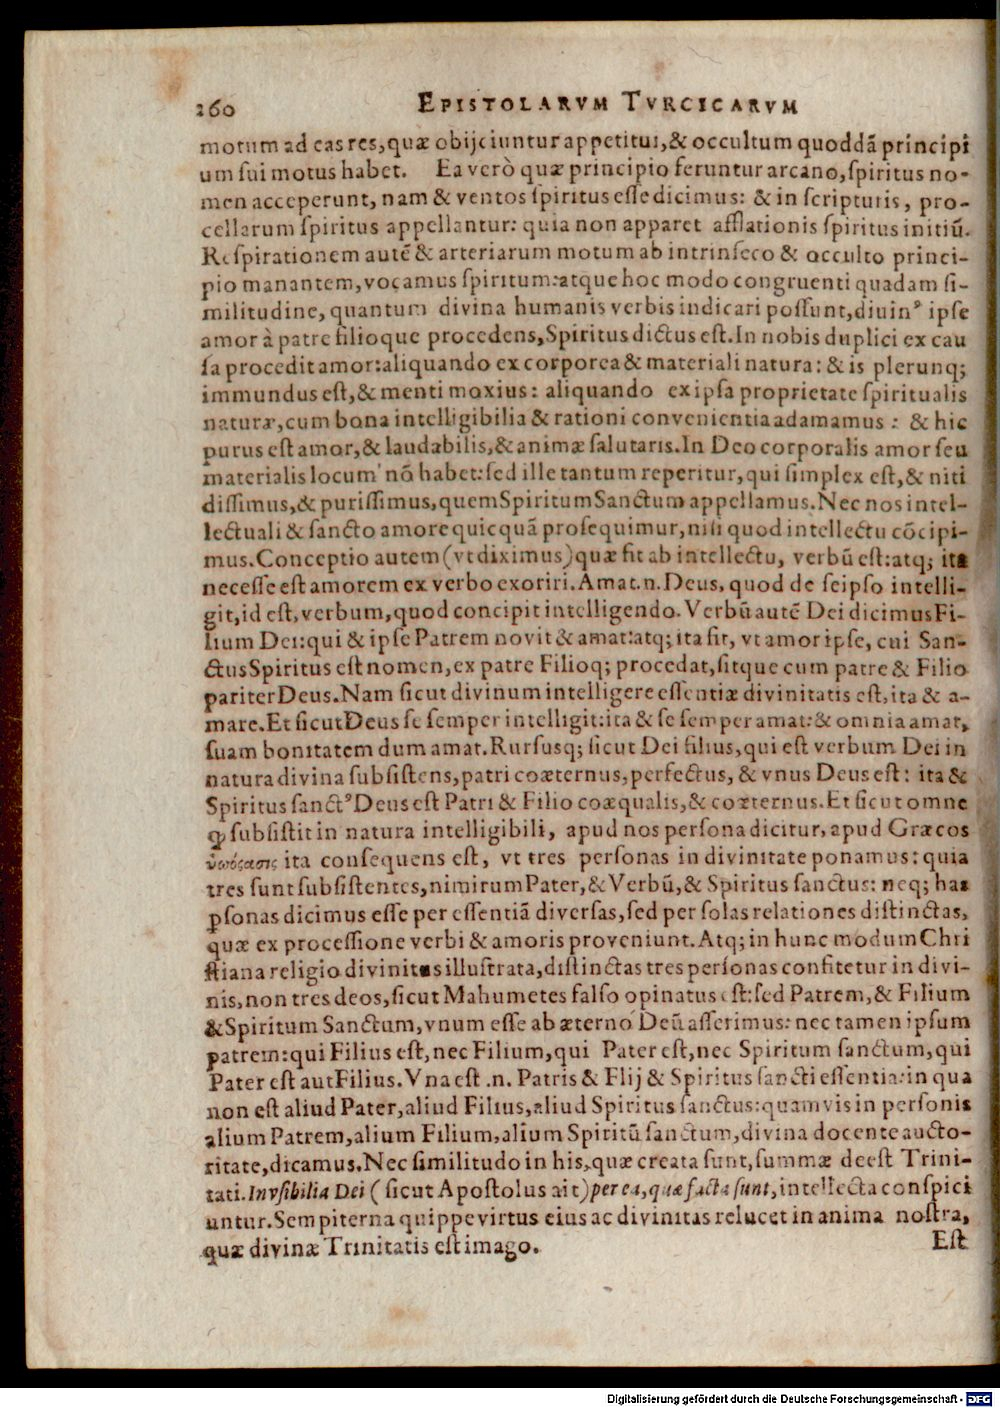 260 EPISTOLARVM TVRCICARVM
motum ad eas res, quæ obijciuntur appetitui, & occultum quoddã principi
um sui motus habet. Ea verò quæ principio feruntur arcano, spiritus no-
men acceperunt, nam & ventos spiritus esse dicimus: & in scripturis, pro-
cellarum spiritus appellantur: quia non apparet afflationis spiritus initiũ.
Respirationem autẽ & arteriarum motum ab intrinseco & occulto princi-
pio manantem, vocamus spiritum: atque hoc modo congruenti quadam si-
militudine, quantum divina humanis verbis indicari possunt, diuinꝰ ipse
amor à patre filioque procedens, Spiritus dictus est. In nobis duplici ex cau
sa procedit amor: aliquando ex corporea & materiali natura: & is plerunq;
immundus est, & menti moxius: aliquando ex ipsa proprietate spiritualis
naturæ, cum bona intelligibilia & rationi convenientia adamamus: & hic
purus est amor, & laudabilis, & animæ salutaris. In Deo corporalis amor seu
materialis locum nõ habet: sed ille tantum reperitur, qui simplex est, & niti
dissimus, & purissimus, quem Spiritum Sanctum appellamus. Nec nos intel-
lectuali & sancto amore quicquã prosequimur, nisi quod intellectu cõcipi-
mus. Conceptio autem (vt diximus) quæ fit ab intellectu, verbũ est: atq; ita
necesse est amorem ex verbo exoriri. Amat .n. Deus, quod de seipso intelli-
git, id est, verbum, quod concipit intelligendo. Verbũ autẽ Dei dicimus Fi-
lium Dei: qui & ipse Patrem novit & amat: atq; ita fit, vt amor ipse, cui San-
ctus Spiritus est nomen, ex patre Filioq; procedat, sitque cum patre & Filio
pariter Deus. Nam sicut divinum intelligere essentiæ divinitatis est, ita & a-
mare. Et sicut Deus se semper intelligit: ita & se semper amat: & omnia amat,
suam bonitatem dum amat. Rursusq; sicut Dei filius, qui est verbum Dei in
natura divina subsistens, patri coæternus, perfectus, & vnus Deus est: ita &
Spiritus sanctꝰ Deus est Patri & Filio coæqualis, & coæternus. Et sicut omne
ꝙ subsistit in natura intelligibili, apud nos persona dicitur, apud Græcos
ὑπόςασις ita consequens est, vt tres personas in divinitate ponamus: quia
tres sunt subsistentes, nimirum Pater, & Verbũ, & Spiritus sanctus: neq; has
ꝑsonas dicimus esse per essentiã diversas, sed per solas relationes distinctas,
quæ ex processione verbi & amoris proveniunt. Atq; in hunc modum Chri
stiana religio divinitus illustrata, distinctas tres personas confitetur in divi-
nis, non tres deos, sicut Mahumetes falso opinatus est: sed Patrem, & Filium
& Spiritum Sanctum, vnum esse ab æterno Deũ asserimus: nec tamen ipsum
patrem: qui Filius est, nec Filium, qui Pater est, nec Spiritum sanctum, qui
Pater est aut Filius. Vna est .n. Patris & Flij & Spiritus sancti essentia: in qua
non est aliud Pater, aliud Filius, aliud Spiritus sanctus: quamvis in personis
alium Patrem, alium Filium, alium Spiritũ sanctum, divina docente aucto-
ritate, dicamus. Nec similitudo in his, quæ creata sunt, summæ deest Trini-
tati. Invsibilia Dei (sicut Apostolus ait) per ea, quæ facta sunt, intellecta conspici
untur. Sempiterna quippe virtus eius ac divinitas relucet in anima nostra,
quæ divinæ Trinitatis est imago.
Est
Digitalisierung gefördert durch die Deutsche Forschungsgemeinschaft - DFG